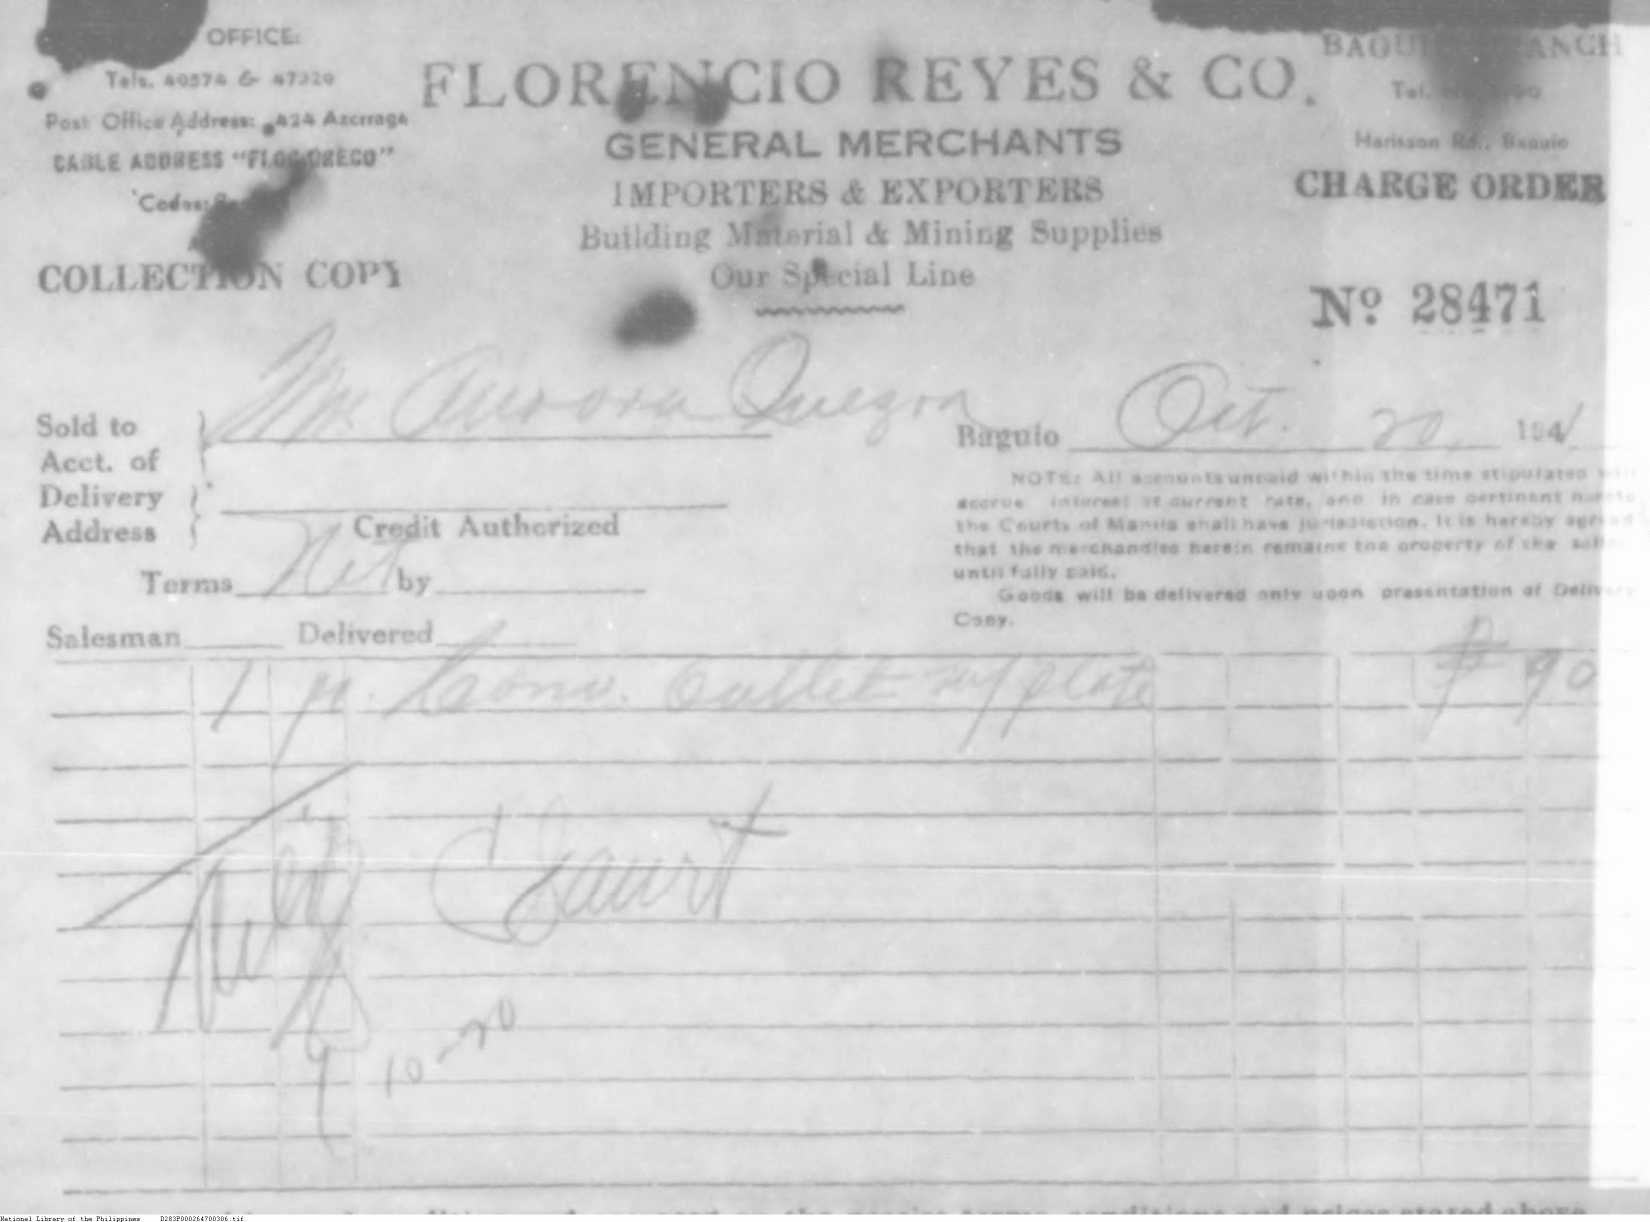 OFFICE:
Tels. 40574 & 47320
Post Office Address: 424 Azcrraga
CABLE ADDRESS
Codes:
COLLECTION COPY
FLORENCIO REYES & CO.
GENERAL MERCHANTS
IMPORTERS & EXPORTERS
Building Material & Mining Supplies
Our Special Line
BAGUIO BRANCH
Tel.
Harisson Rd., Baguio
CHARGE ORDER
Nº 28471
Sold to Aurora Quezon
Acct. of
Baguio Oct. 20, 1941
Delivery
Address
Credit Authorized
Terms Net by
Salesman Delivered
NOTE: All accounts unpaid within the time stipulated will
accrue interest at current rate, and in case pertinent hereto
the Courts of Manila shall have jurisdiction. It is hereby agreed
that the merchandise herein remains the property of the seller
until fully paid.
Goods will be delivered only upon presentation of Delivery
Copy.
1 pc. Conv. Outlet w/ plate ₱ 90
10-20
conditions and prices stated above